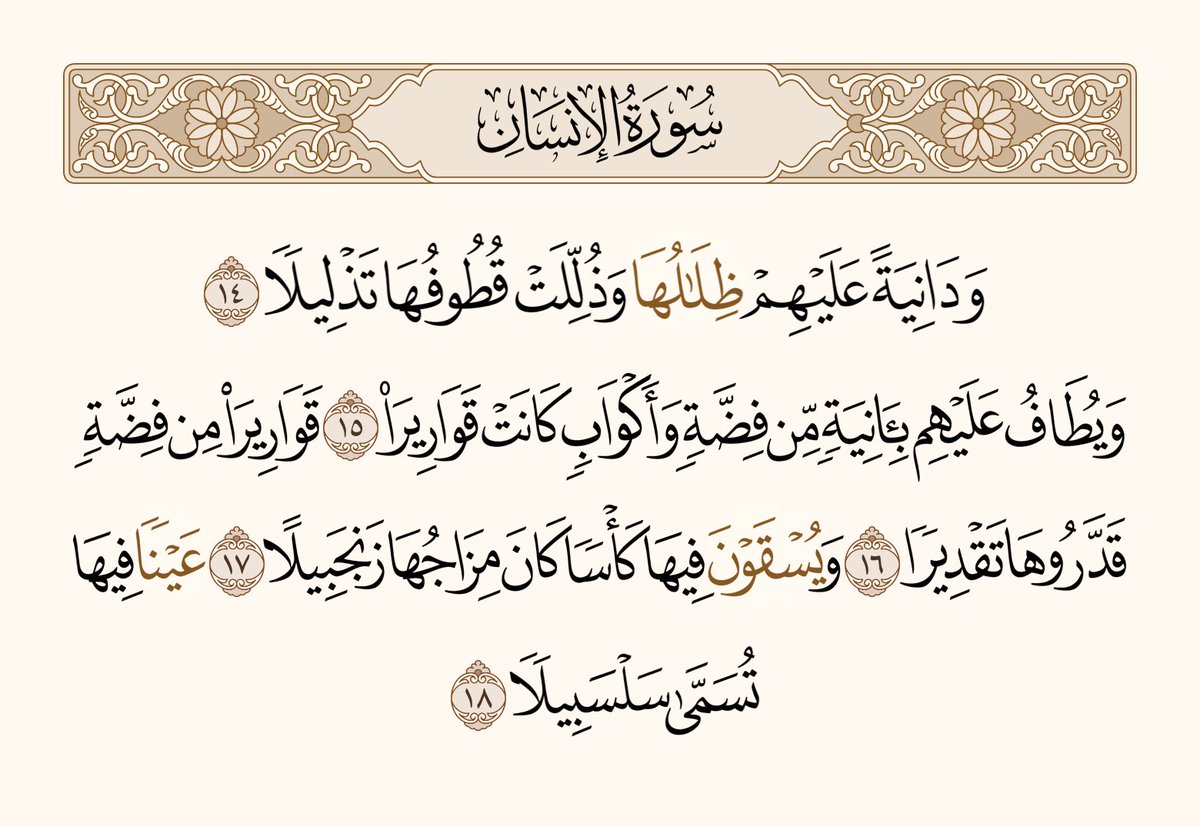 سُورَةُ الإِنسَانِ
وَدَانِيَةً عَلَيْهِمْ ظِلَٰلُهَا وَذُلِّلَتْ قُطُوفُهَا تَذْلِيلًا ١٤
وَيُطَافُ عَلَيْهِم بِـَٔانِيَةٍ مِّن فِضَّةٍ وَأَكْوَابٍ كَانَتْ قَوَارِيرَا۠ ١٥ قَوَارِيرَا۟ مِن فِضَّةٍ
قَدَّرُوهَا تَقْدِيرًا ١٦ وَيُسْقَوْنَ فِيهَا كَأْسًا كَانَ مِزَاجُهَا زَنجَبِيلًا ١٧ عَيْنًا فِيهَا
تُسَمَّىٰ سَلْسَبِيلًا ١٨